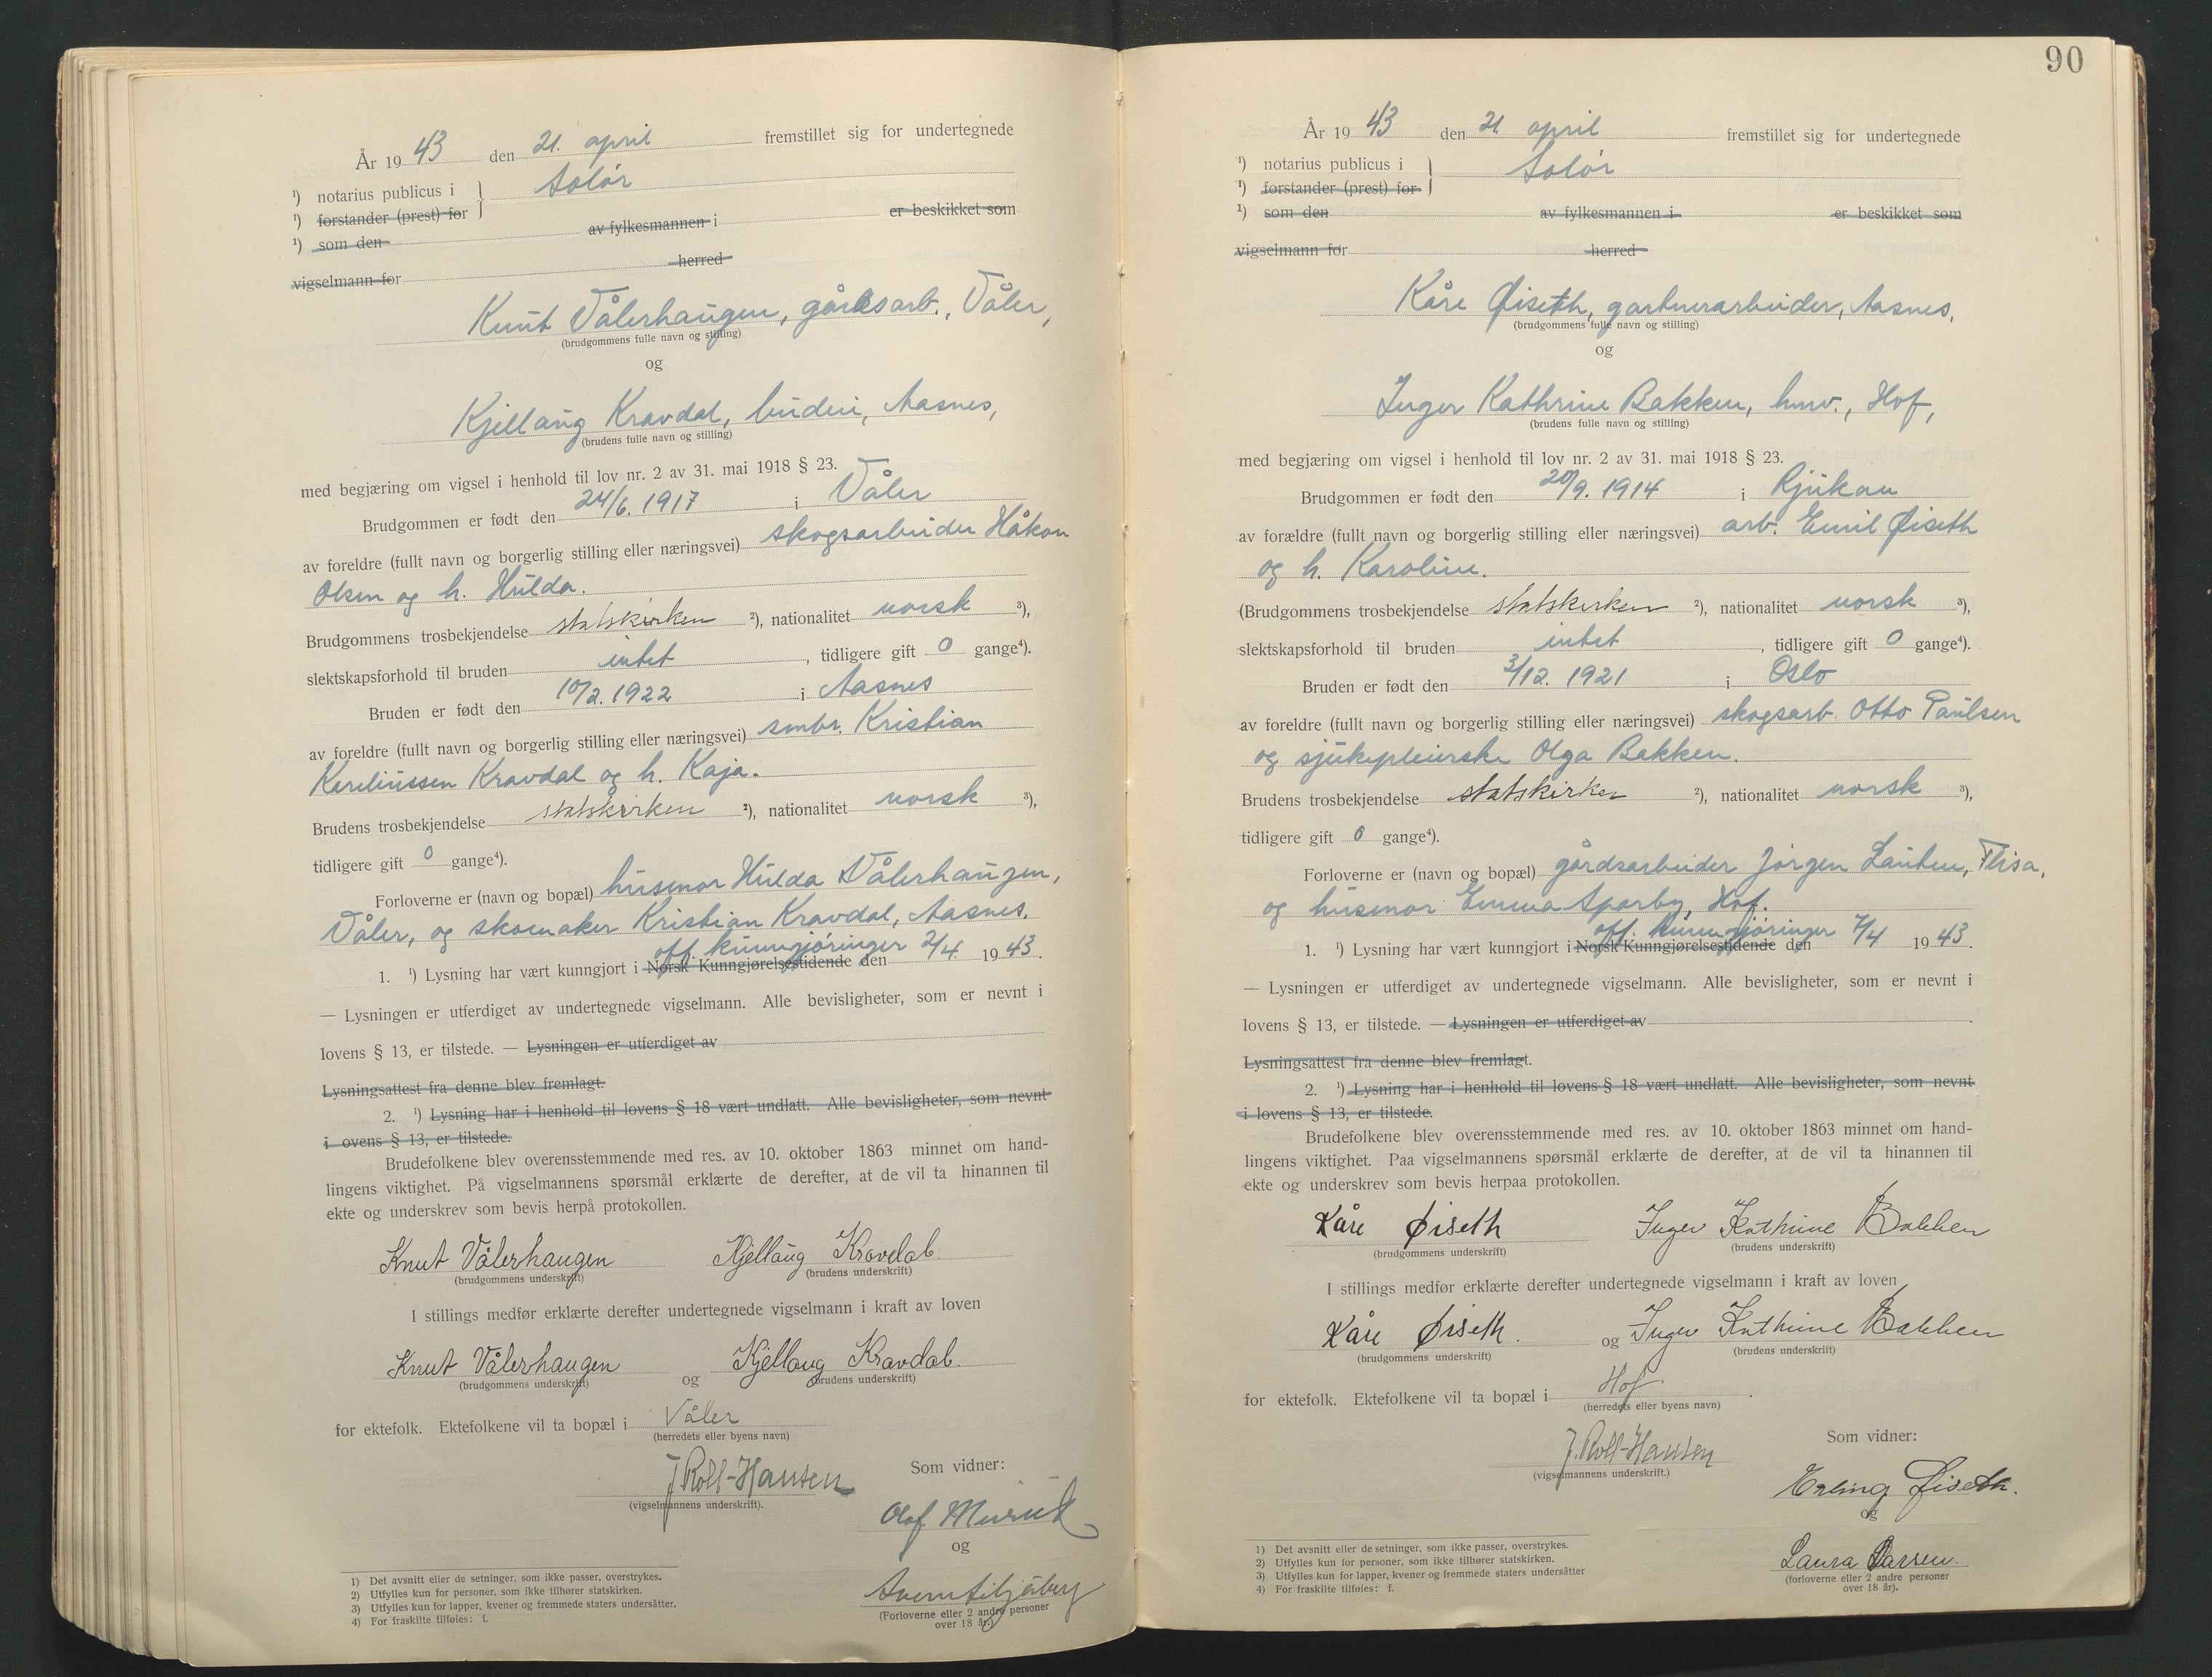 År 19 43 den 21. april fremstillet sig for undertegnede
¹) notarius publicus i } Solør
¹) forstander (prest) for
¹) som den av fylkesmannen i er beskikket som
vigselmann for herred
Knut Vålerhaugen, gårdsarb., Våler,
(brudgommens fulle navn og stilling)
og
Kjellaug Kravdal, budeie, Aasnes,
(brudens fulle navn og stilling)
med begjæring om vigsel i henhold til lov nr. 2 av 31. mai 1918 § 23.
Brudgommen er født den 24/6. 1917 i Våler
av foreldre (fullt navn og borgerlig stilling eller næringsvei) skogsarbeider Håkon
Olsen og h. Hulda.
Brudgommens trosbekjendelse statskirken ²), nationalitet norsk ³),
slektskapsforhold til bruden intet , tidligere gift 0 gange⁴).
Bruden er født den 10/2. 1922 i Aasnes
av foreldre (fullt navn og borgerlig stilling eller næringsvei) smbr. Kristian
Kareliussen Kravdal og h. Kaja.
Brudens trosbekjendelse statskirken ²), nationalitet norsk ³),
tidligere gift 0 gange⁴).
Forloverne er (navn og bopæl) husmor Hulda Vålerhaugen,
Våler, og skomaker Kristian Kravdal, Aasnes.
off. kunngjøringer
1. ¹) Lysning har vært kunngjort i Norsk Kunngjørelsestidende den 2/4. 19 43.
— Lysningen er utferdiget av undertegnede vigselmann. Alle bevisligheter, som er nevnt i
lovens § 13, er tilstede. — Lysningen er utferdiget av
Lysningsattest fra denne blev fremlagt.
2. ¹) Lysning har i henhold til lovens § 18 vært undlatt. Alle bevisligheter, som nevnt
i ovens § 13, er tilstede.
Brudefolkene blev overensstemmende med res. av 10. oktober 1863 minnet om hand-
lingens viktighet. På vigselmannens spørsmål erklærte de derefter, at de vil ta hinannen til
ekte og underskrev som bevis herpå protokollen.
Knut Vålerhaugen Kjellaug Kravdal.
(brudgommens underskrift) (brudens underskrift)
I stillings medfør erklærte derefter undertegnede vigselmann i kraft av loven
Knut Vålerhaugen og Kjellaug Kravdal.
(brudgommens underskrift) (brudens underskrift)
for ektefolk. Ektefolkene vil ta bopæl i Våler
(herredets eller byens navn)
J Roll-Hansen
(vigselmannens underskrift).
Som vidner:
Olof
og
(Forloverne eller 2 andre personer
over 18 år.)
1) Det avsnitt eller de setninger, som ikke passer, overstrykes.
2) Utfylles kun for personer, som ikke tilhører statskirken.
3) Utfylles kun for lapper, kvener og fremmede staters undersåtter.
4) For fraskilte tilføies: f.
90
År 19 43 den 21. april fremstillet sig for undertegnede
¹) notarius publicus i } Solør
¹) forstander (prest) for
¹) som den av fylkesmannen i er beskikket som
vigselmann for herred
Kåre Øiseth, gartnerarbeider, Aasnes,
(brudgommens fulle navn og stilling)
og
Inger Kathrine Bakken, hmv., Hof,
(brudens fulle navn og stilling)
med begjæring om vigsel i henhold til lov nr. 2 av 31. mai 1918 § 23.
Brudgommen er født den 20/9. 1914 i Rjukan
av forældre (fullt navn og borgerlig stilling eller næringsvei) arb. Emil Øiseth
og h. Karoline.
(Brudgommens trosbekjendelse statskirken ²), nationalitet norsk ³),
slektskapsforhold til bruden intet , tidligere gift 0 gange⁴).
Bruden er født den 3/12. 1921 i Oslo
av foreldre (fullt navn og borgerlig stilling eller næringsvei) skogsarb. Otto Paulsen
og sjukepleierske Olga Bakken.
Brudens trosbekjendelse statskirken ²), nationalitet norsk ³),
tidligere gift 0 gange⁴).
Forloverne er (navn og bopæl) gårdsarbeider Jørgen Lauten, Flisa,
og husmor Emma Sparby, Hof.
off. kunngjøringer
1. ¹) Lysning har vært kunngjort i Norsk Kunngjørelsestidende den 7/4 19 43.
— Lysningen er utferdiget av undertegnede vigselmann. Alle bevisligheter, som er nevnt i
lovens § 13, er tilstede. — Lysningen er utferdiget av
Lysningsattest fra denne blev fremlagt.
2. ¹) Lysning har i henhold til lovens § 18 vært undlatt. Alle bevisligheter, som nevnt
i lovens § 13, er tilstede.
Brudefolkene blev overensstemmende med res. av 10. oktober 1863 minnet om hand-
lingens viktighet. Paa vigselmannens spørsmål erklærte de derefter, at de vil ta hinannen til
ekte og underskrev som bevis herpaa protokollen.
Kåre Øiseth Inger Kathrine Bakken
(brudgommens underskrift) (brudens underskrift)
I stillings medfør erklærte derefter undertegnede vigselmann i kraft av loven
Kåre Øiseth. og Inger Kathrine Bakken
(brudgommens underskrift) (brudens underskrift)
for ektefolk. Ektefolkene vil ta bopæl i Hof.
(herredets eller byens navn)
J. Roll-Hansen
(vigselmannens underskrift.)
Som vidner:
Erling Øiseth.
og
Laura Larsen.
(forloverne eller 2 andre personer
over 18 år).
1) Det avsnitt eller de setninger, som ikke passer, overstrykes.
2) Utfylles kun for personer, som ikke tilhører statskirken.
3) Utfylles kun for lapper, kvener og fremmede staters undersåtter
4) For fraskilte tilføies: f.